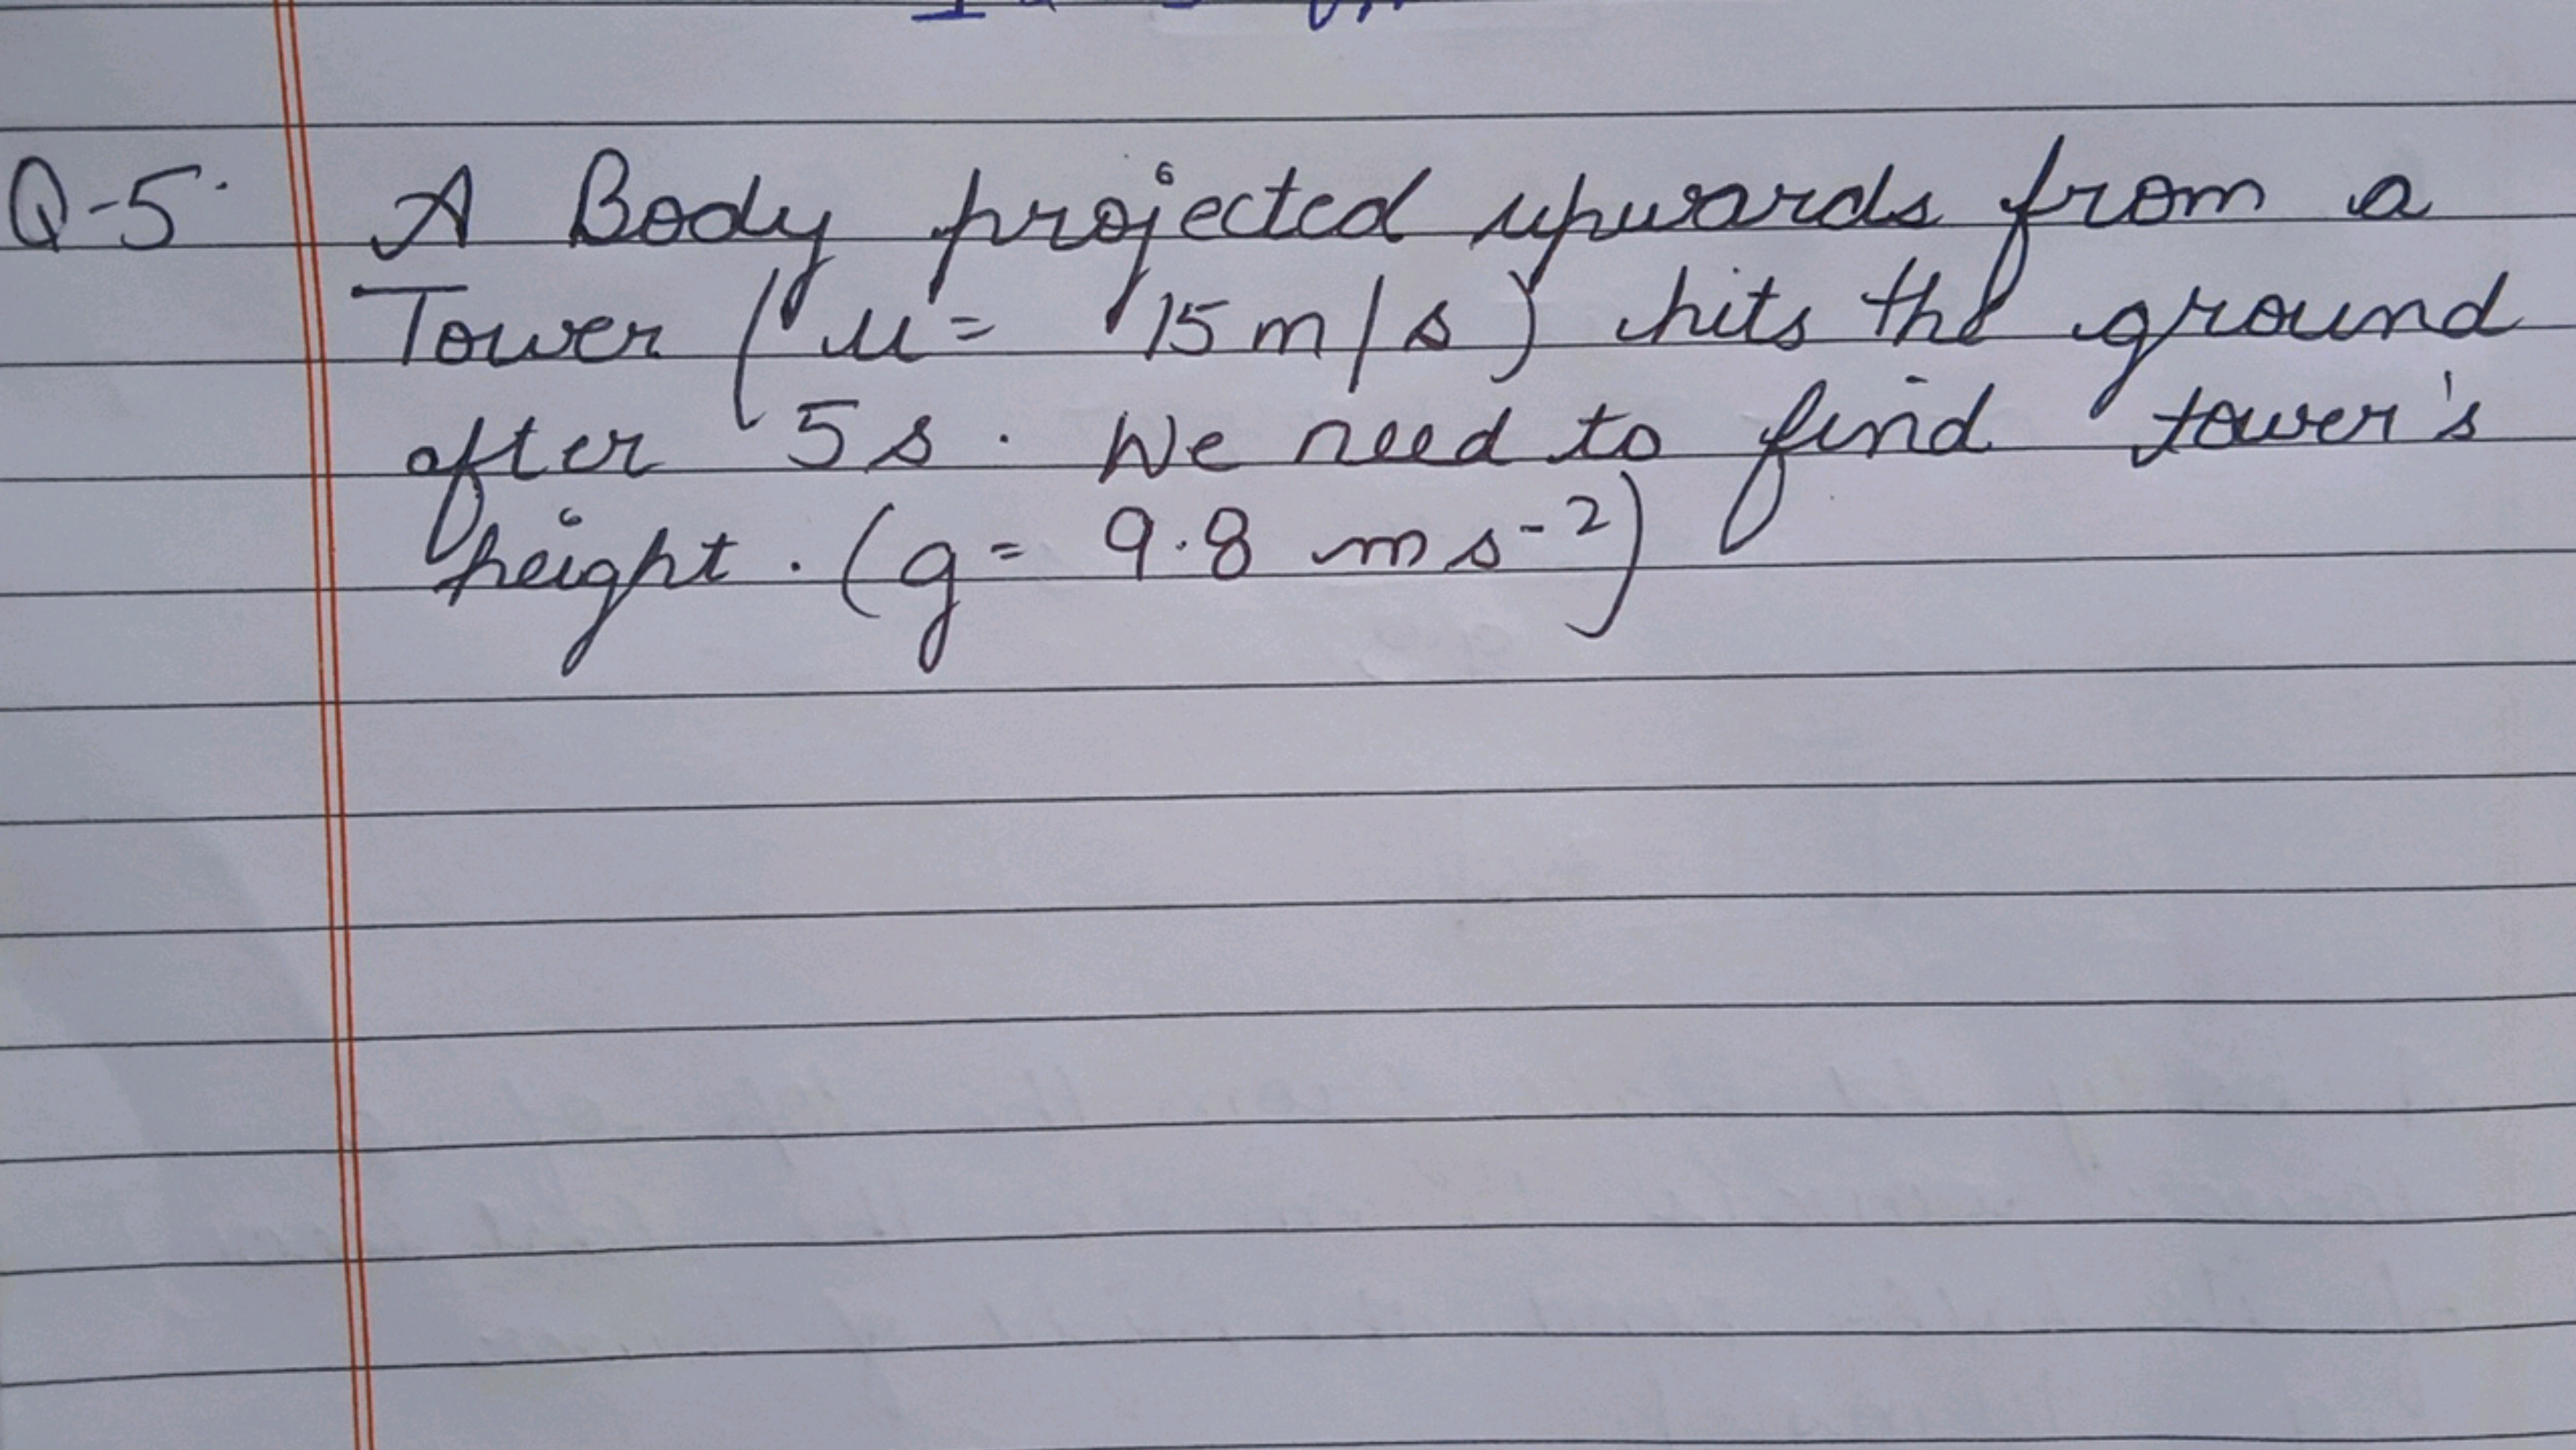 Q-5. A Body projected upwards from a
Tower (u = 15 m/s) hits the ground
after 5s. We need to find tower's
height. (g = 9.8 ms⁻²)